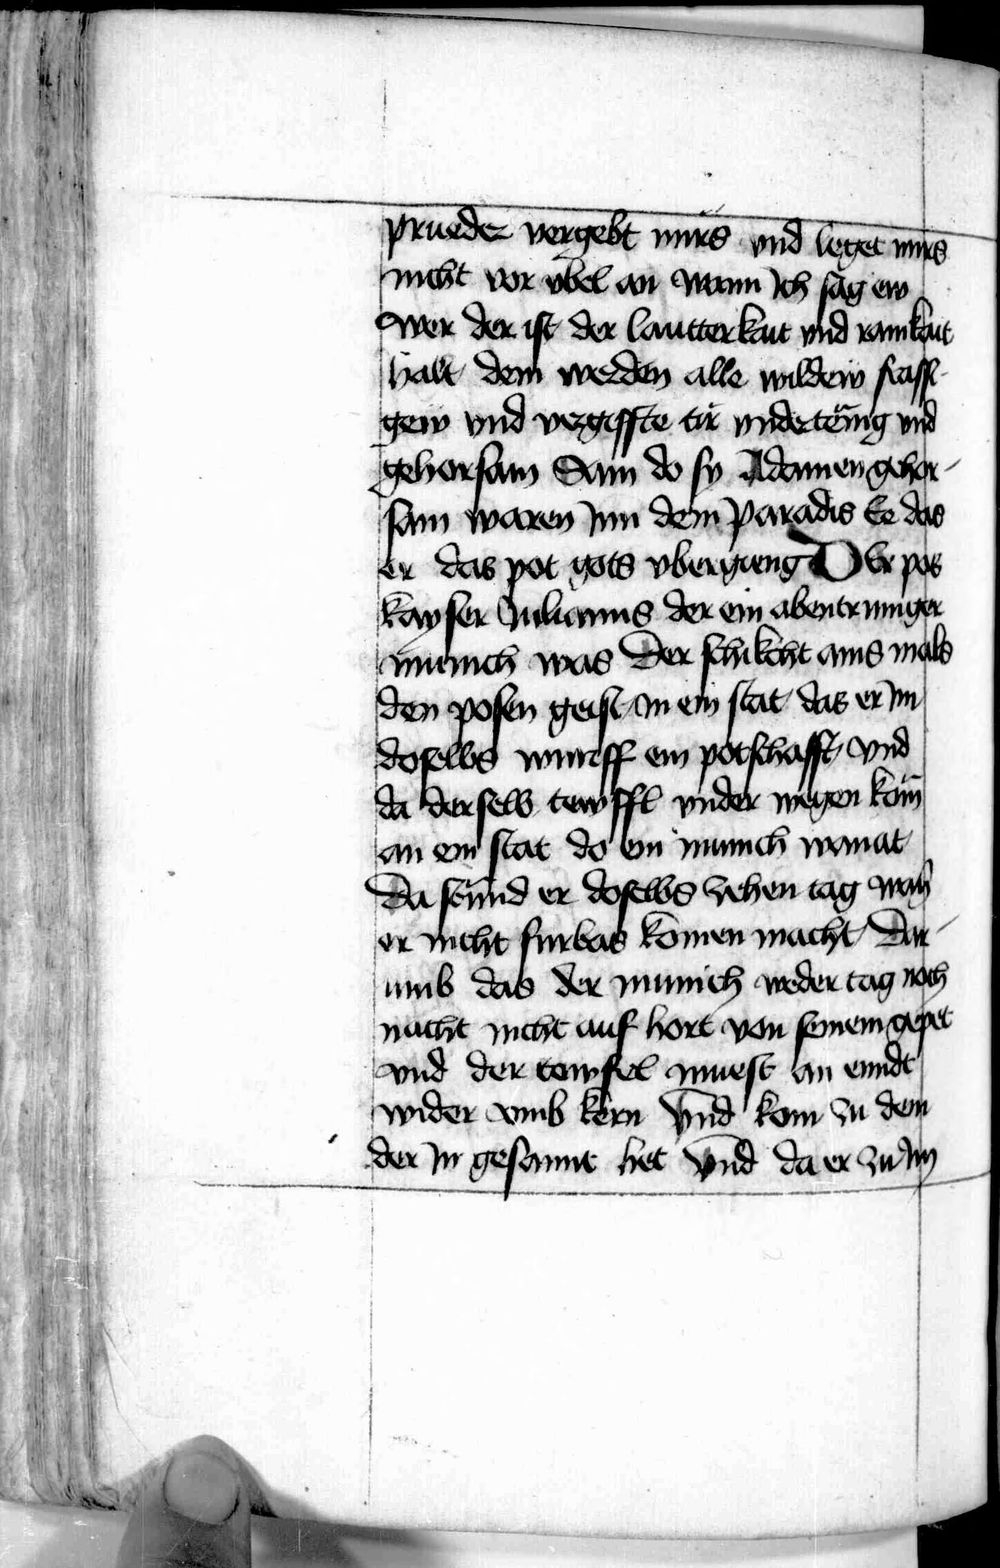 prueder vergebt mirs vnd leget mirs
nicht vor vbel an wann Ich sag ew
wer der ist der lautterkait vnd rainkait
halt dem werden alle wildew frassi-
gew vnd vergiffte tir vndertenig vnd
gehorsam Sam do sy Adamen gehor-
sam waren Inn dem Paradis Ee das
er das pot gots vbergieng Der pos
kayser Julianus der ein abentrunniger
munich was Der schikcht ains mals
den posen geist in ein stat das er Im
doselbs wurff ein potschafft vnd
da derselb tewffl vnder wegen kom
an ein stat do ein munich wonat
Da stund er doselbs zehen tag wan
er nicht furbas komen macht Dar-
umb das der munich weder tag noch
nacht nicht auf hort von seinem gepet
vnd der tewfel muest an enndt
wider vmb kern Vnd kom zu dem
der In gesannt het Vnd da er zu Im